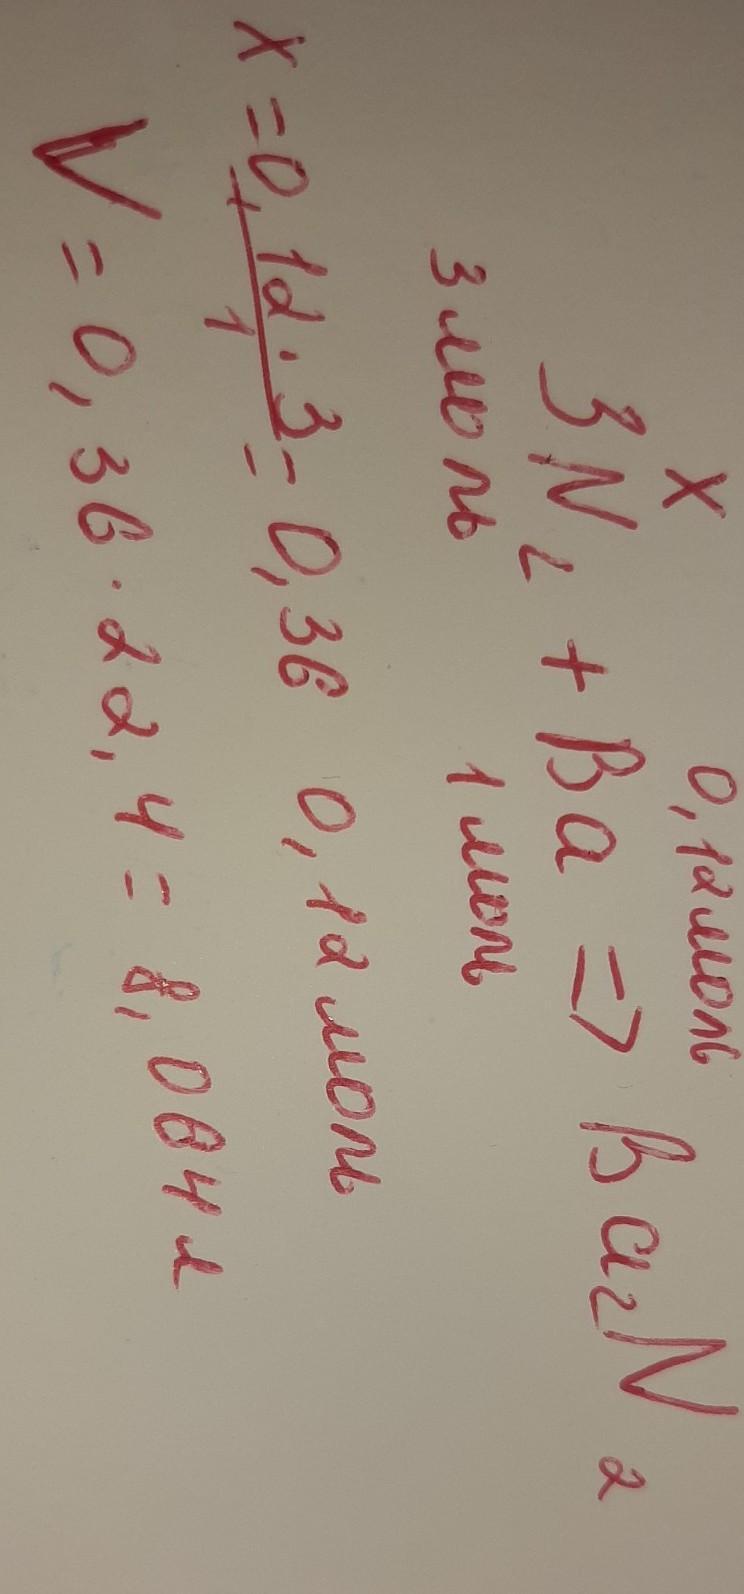 x 0,12 моль
3N₂ + Ba => Ba₂N₂
3 моль 1 моль
0,12 моль
x = 0,12·3/1 = 0,36
V = 0,36·22,4 = 8,064 л